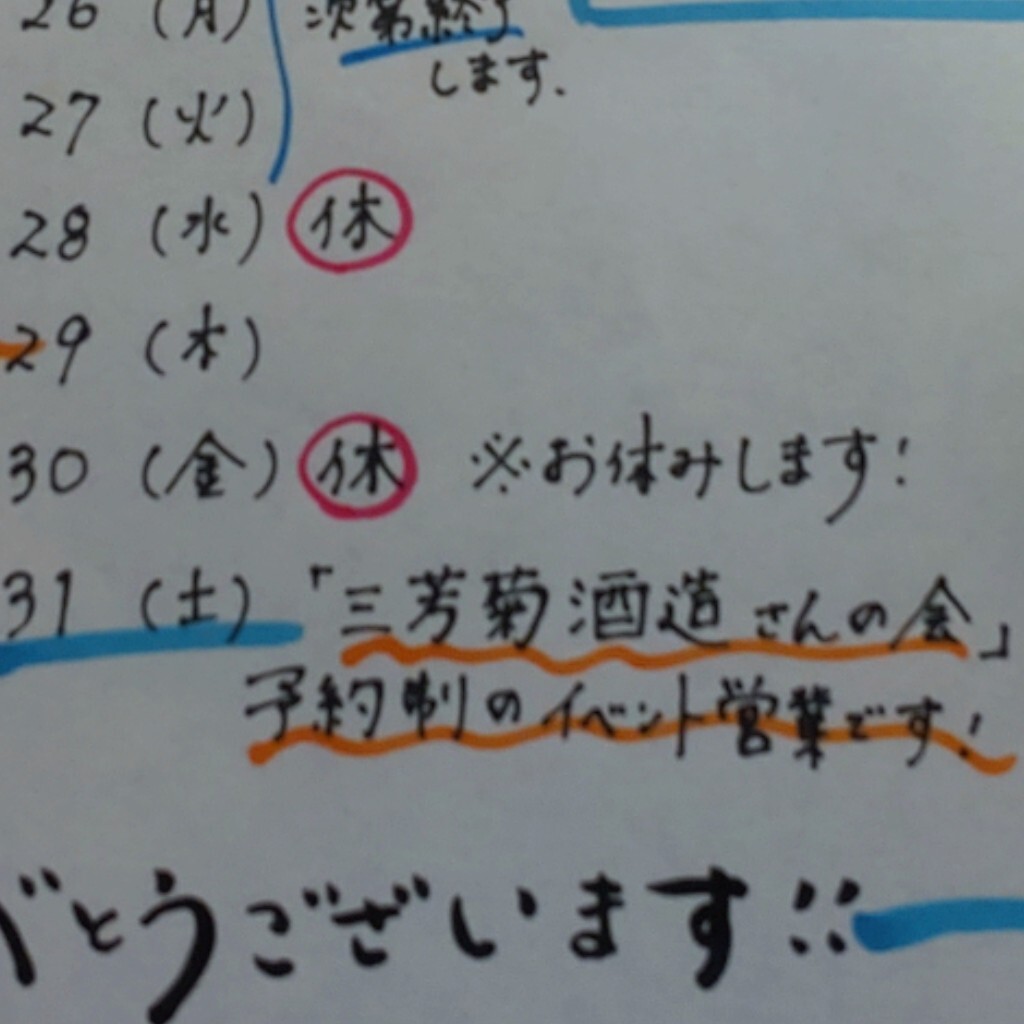 26 (月) 次第終了
します.
27 (火)
28 (水) 休
29 (木)
30 (金) 休 ※お休みします!
31 (土) 「三芳菊酒造さんの会」
予約制のイベント営業です!
がとうございます!!